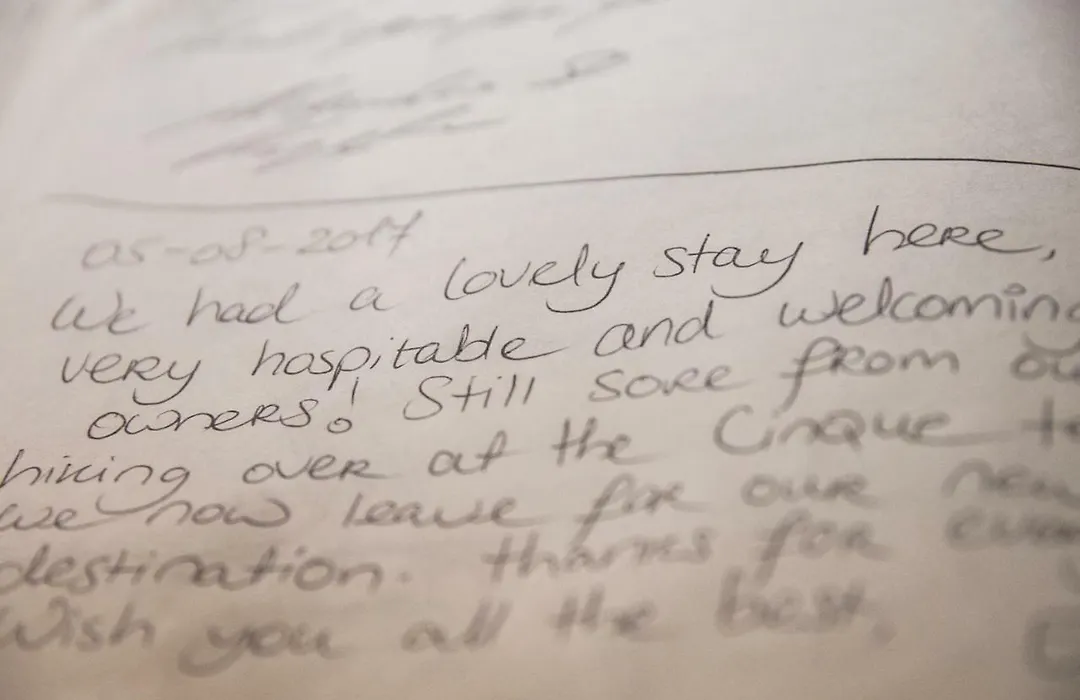 05-08-2017
We had a lovely stay here,
very hospitable and welcoming
owners! Still sore from
hiking over at the Cinque
we now leave for our
destination. thanks for
Wish you all the best,